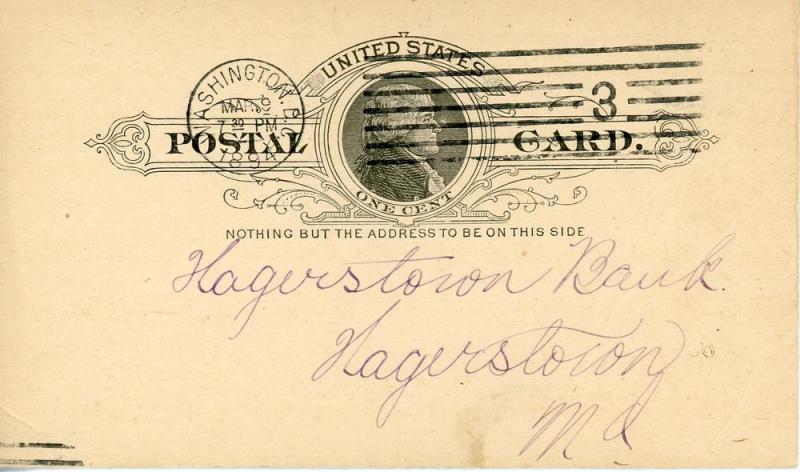 UNITED STATES
WASHINGTON, D.C.
MAR
7 30 PM
1894
3
POSTAL CARD.
ONE CENT
NOTHING BUT THE ADDRESS TO BE ON THIS SIDE
Hagerstown Bank
Hagerstown
Md